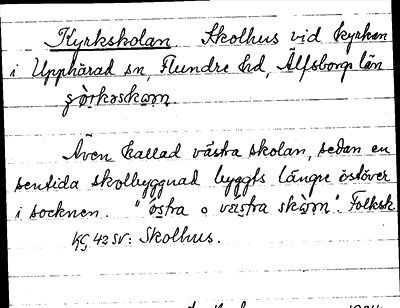 Kyrkskolan Skolhus vid kyrkan
i Upphärad sn, Flundre hd, Älfsborgs län
Även kallad västra skolan, sedan en
sentida skolbyggnad byggts längre österöver
i socknen. "östra o västra skọ̀ln". Folksk.
KG 42 SV: Skolhus.